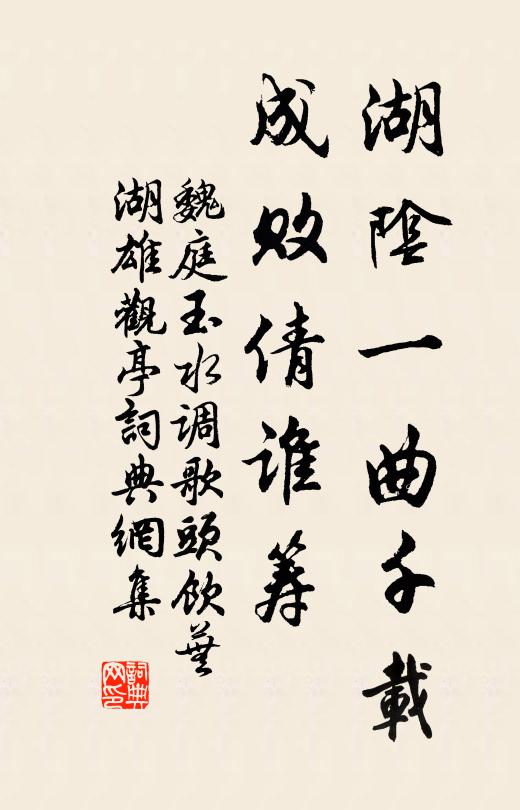 湖陰一曲千載
成敗倩誰筭
魏庭玉水调歌頭飲蕪
湖雄觀亭詞典網集
詞典网印